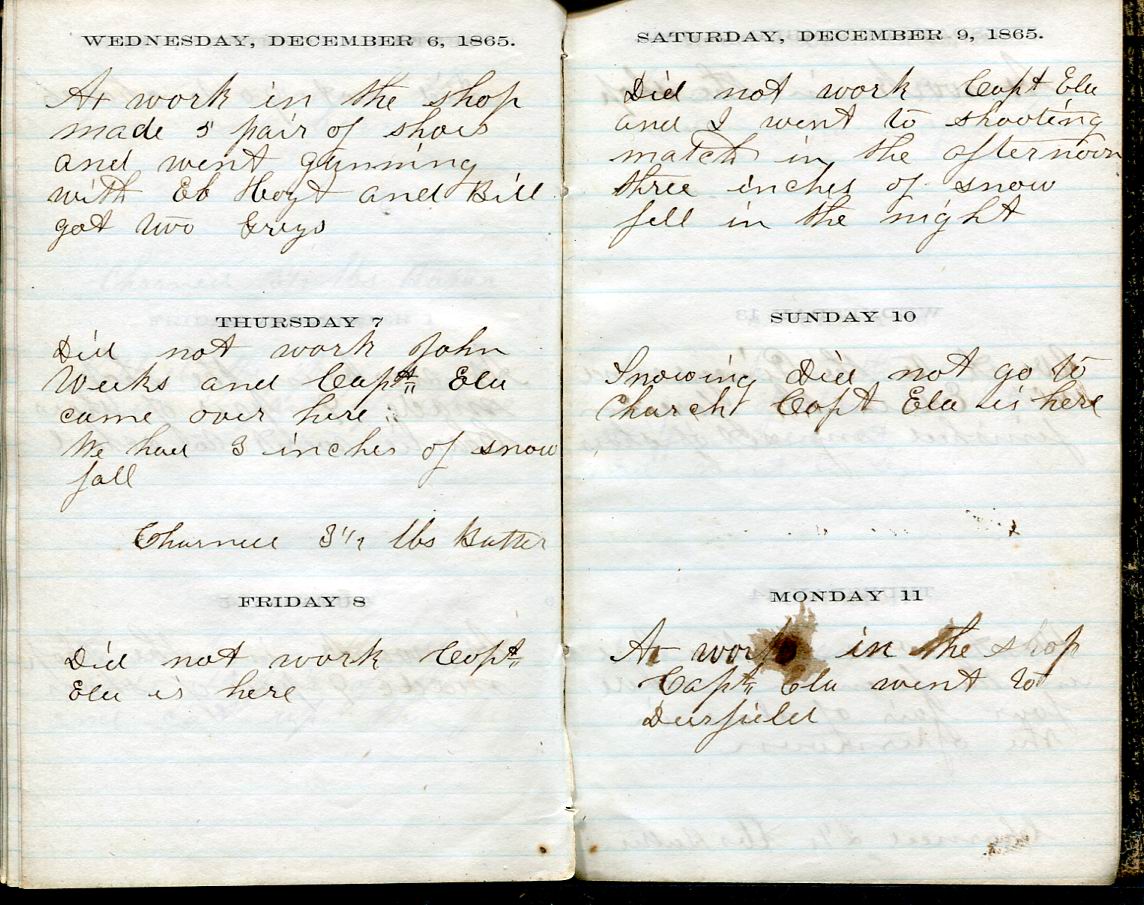 WEDNESDAY, DECEMBER 6, 1865.
At work in the shop
made 5 pair of shoes
and went gunning
with Eb Hoyt and Bill
got two Greys
THURSDAY 7
Did not work John
Weeks and Capt Ela
came over here
We had 3 inches of snow
fall
Churned 3 1/2 lbs Butter
FRIDAY 8
Did not work Capt
Ela is here
SATURDAY, DECEMBER 9, 1865.
Did not work Capt Ela
and I went to shooting
match in the afternoon
three inches of snow
fell in the night
SUNDAY 10
Snowing Did not go to
Church Capt Ela is here
MONDAY 11
At work in the shop
Capt Ela went to
Deerfield